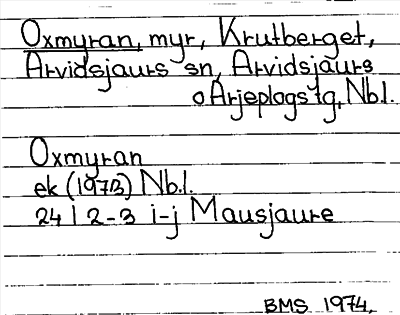 Oxmyran, myr, Krutberget,
Arvidsjaurs sn, Arvidsjaurs
o Arjeplogs tg, Nb.l.
Oxmyran
ek (1973) Nb.l.
24 I 2-3 i-j Mausjaure
BMS 1974.